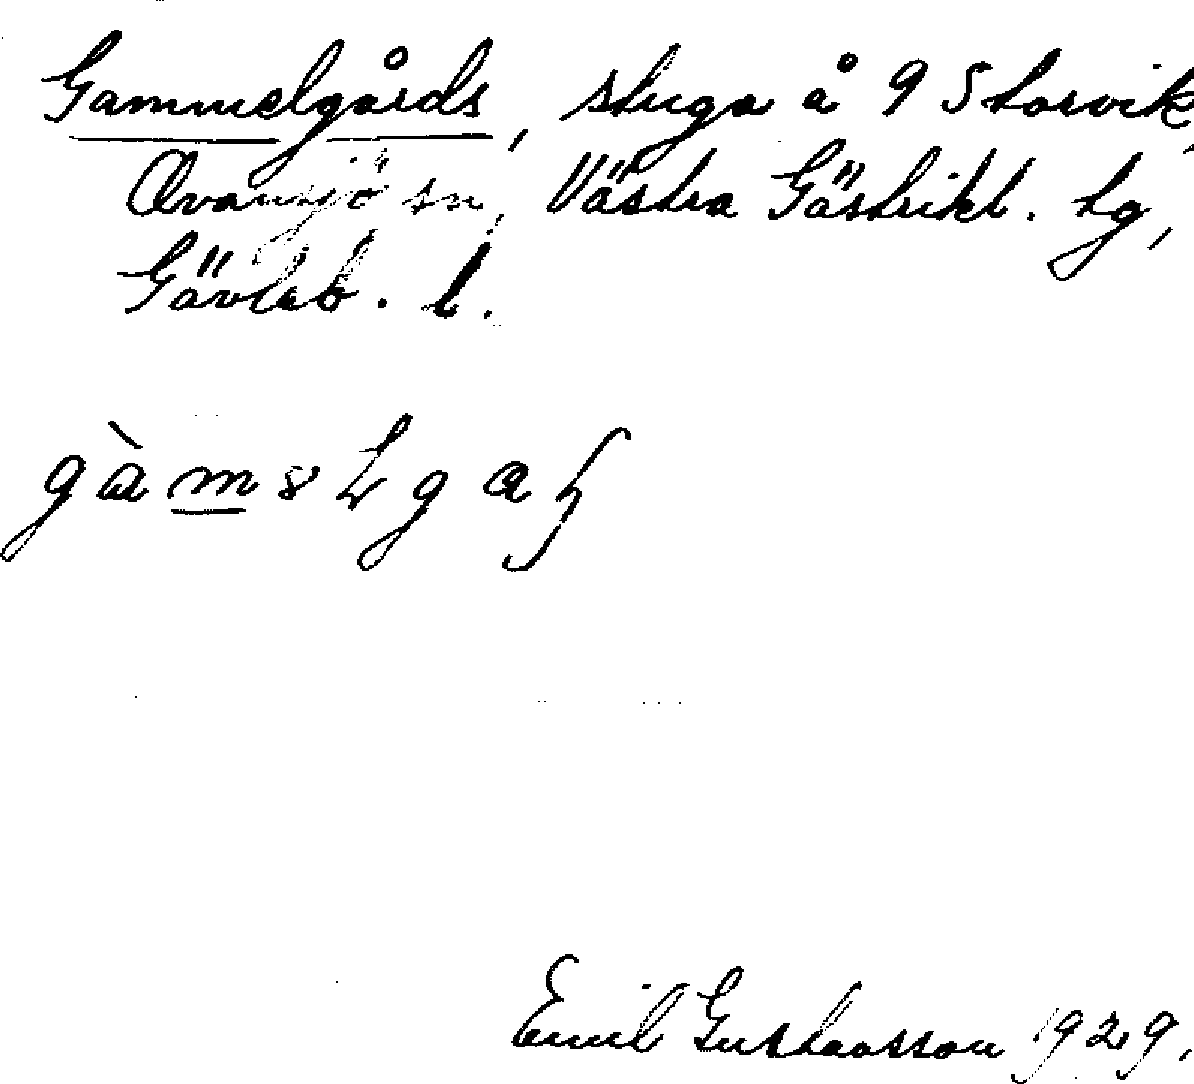 Gammelgårds, stuga å 9 Storvik,
Ovansjö sn, Västra Gästrikl. tg,
Gävleb. l.
Emil Gustavsson 1929.